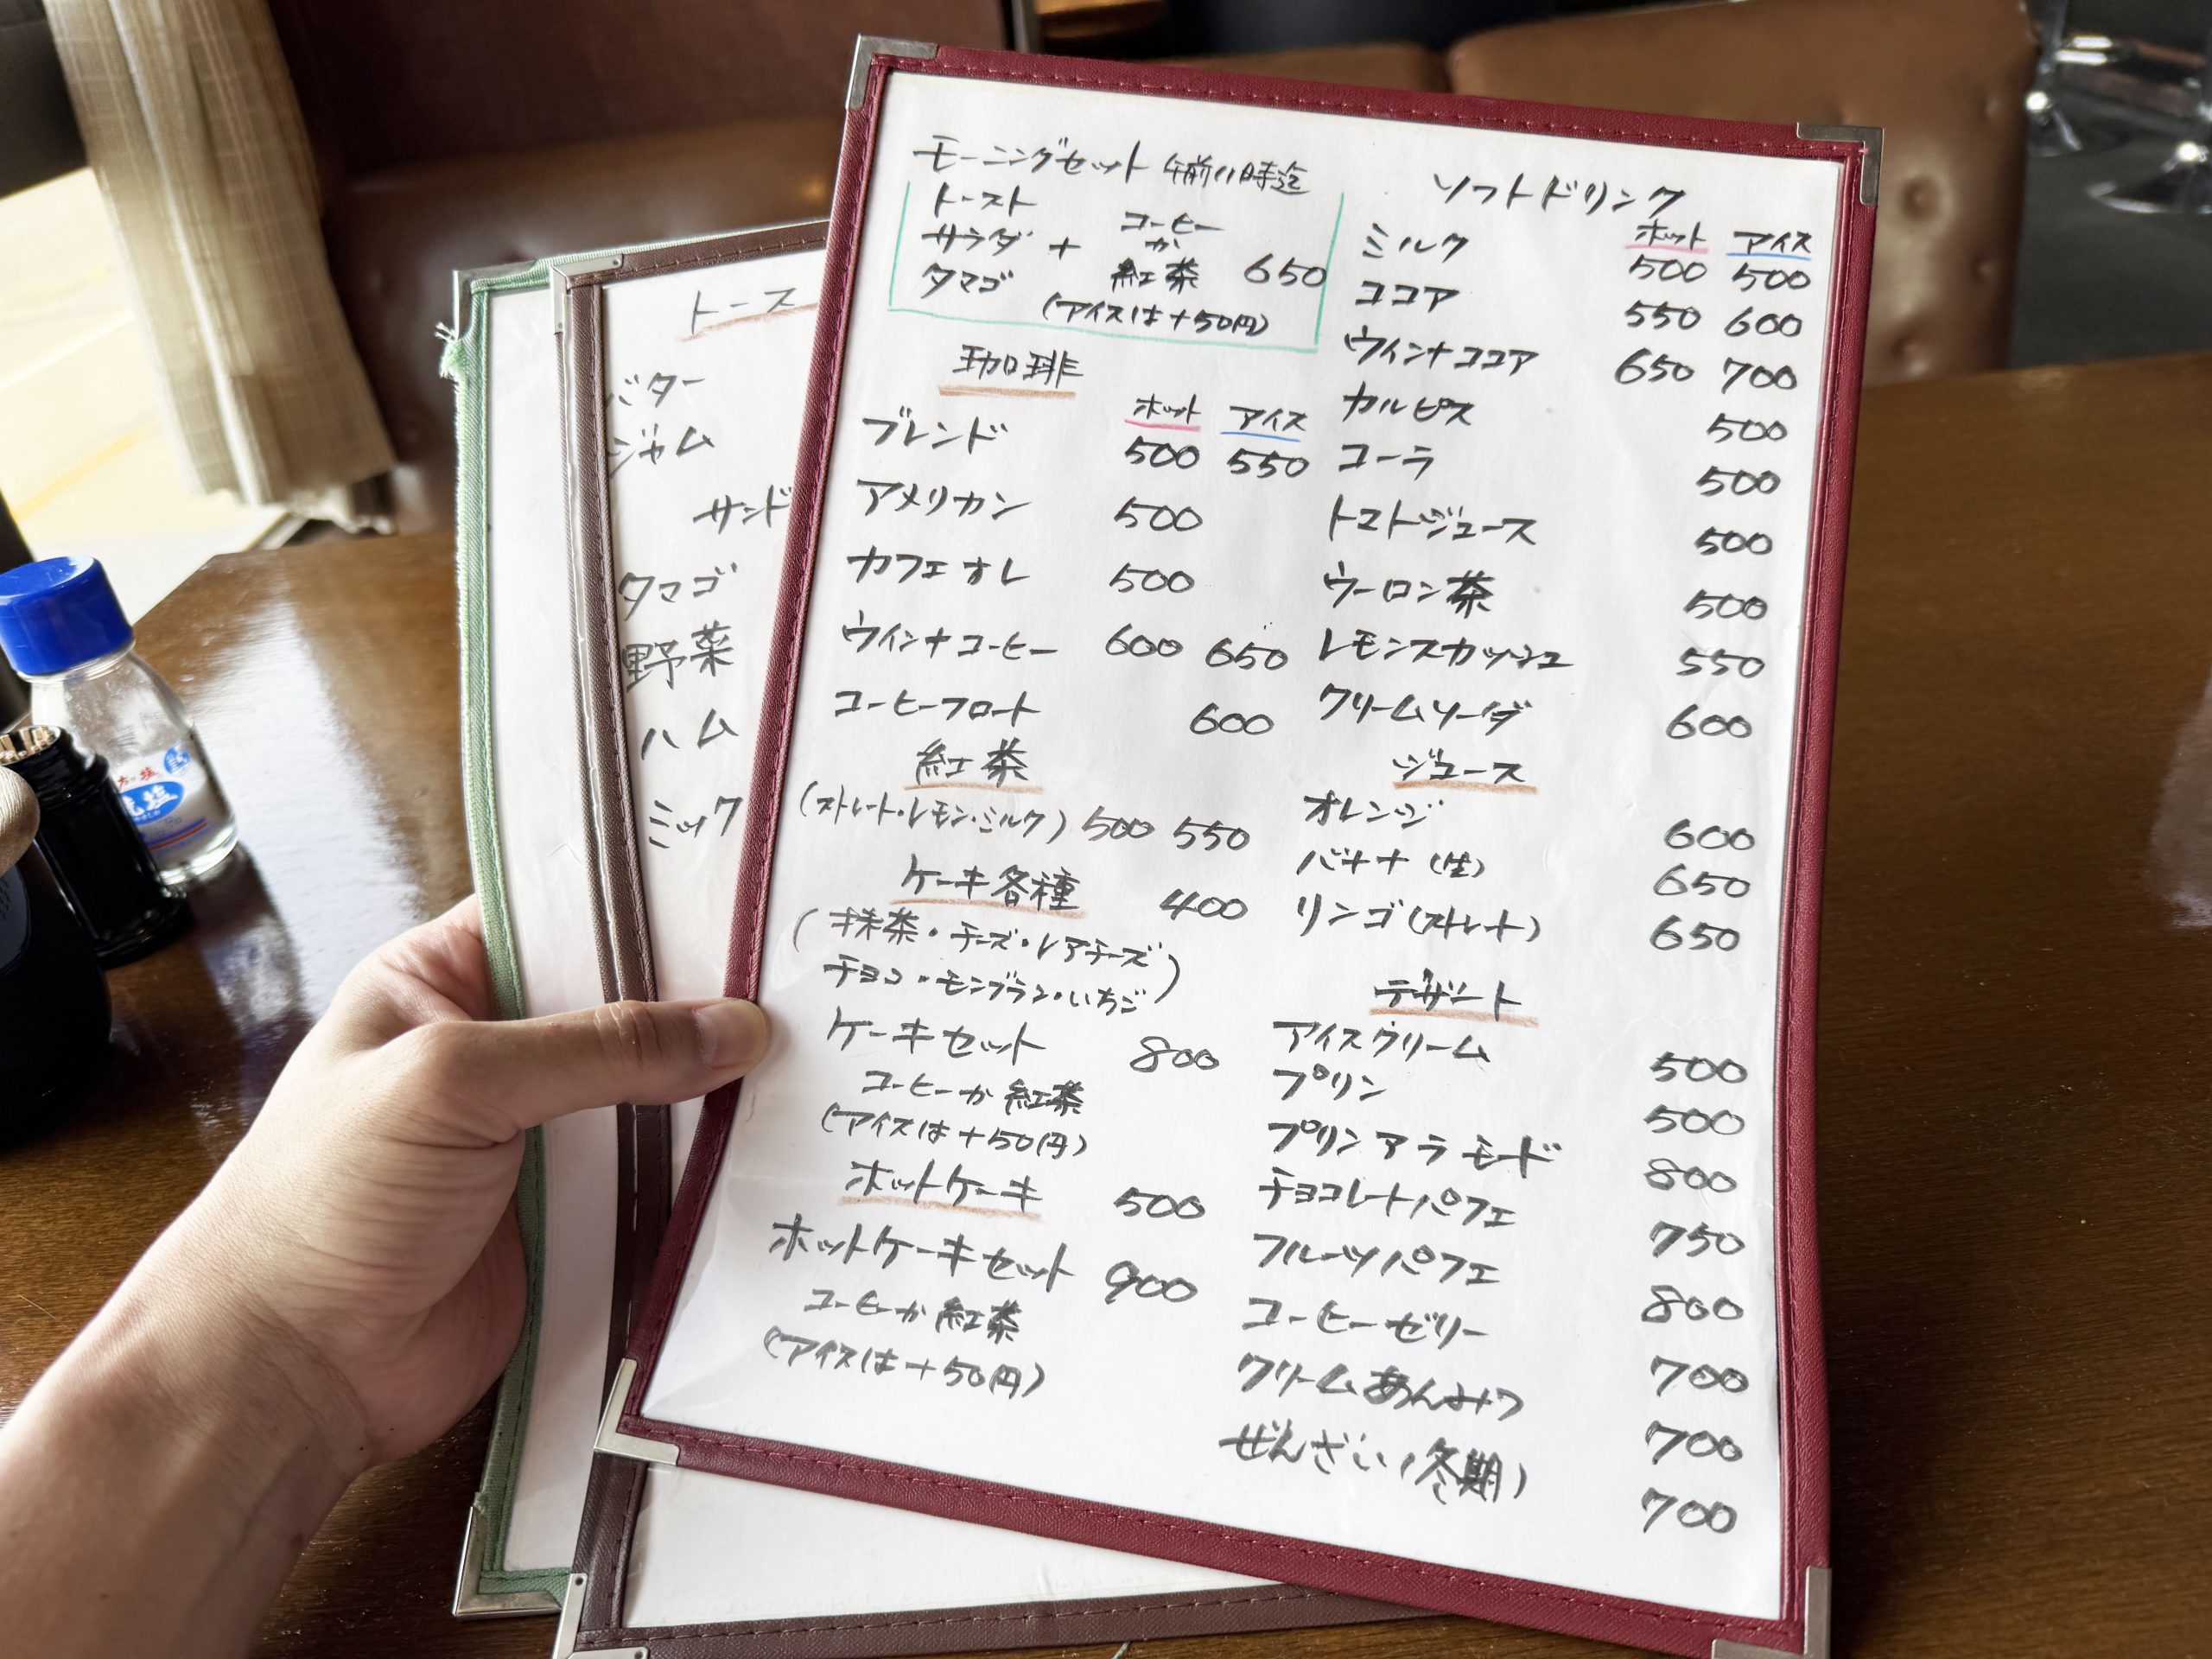 モーニングセット 午前11時迄
トースト
サラダ + コーヒー か 紅茶 650
タマゴ
(アイスは+50円)
珈琲
ホット アイス
ブレンド 500 550
アメリカン 500
カフェオレ 500
ウインナコーヒー 600 650
コーヒーフロート 600
紅茶
(ストレート・レモン・ミルク) 500 550
ケーキ各種 400
(抹茶・チーズ・レアチーズ
チョコ・モンブラン・いちご)
ケーキセット 800
コーヒーか紅茶
(アイスは+50円)
ホットケーキ 500
ホットケーキセット 900
コーヒーか紅茶
(アイスは+50円)
ソフトドリンク
ホット アイス
ミルク 500 500
ココア 550 600
ウインナココア 650 700
カルピス 500
コーラ 500
トマトジュース 500
ウーロン茶 500
レモンスカッシュ 550
クリームソーダ 600
ジュース
オレンジ 600
バナナ(生) 650
リンゴ(ストレート) 650
デザート
アイスクリーム 500
プリン 500
プリンアラモード 800
チョコレートパフェ 750
フルーツパフェ 800
コーヒーゼリー 700
クリームあんみつ 700
ぜんざい(冬期) 700
トース
バター
ジャム
サンド
タマゴ
野菜
ハム
ミック